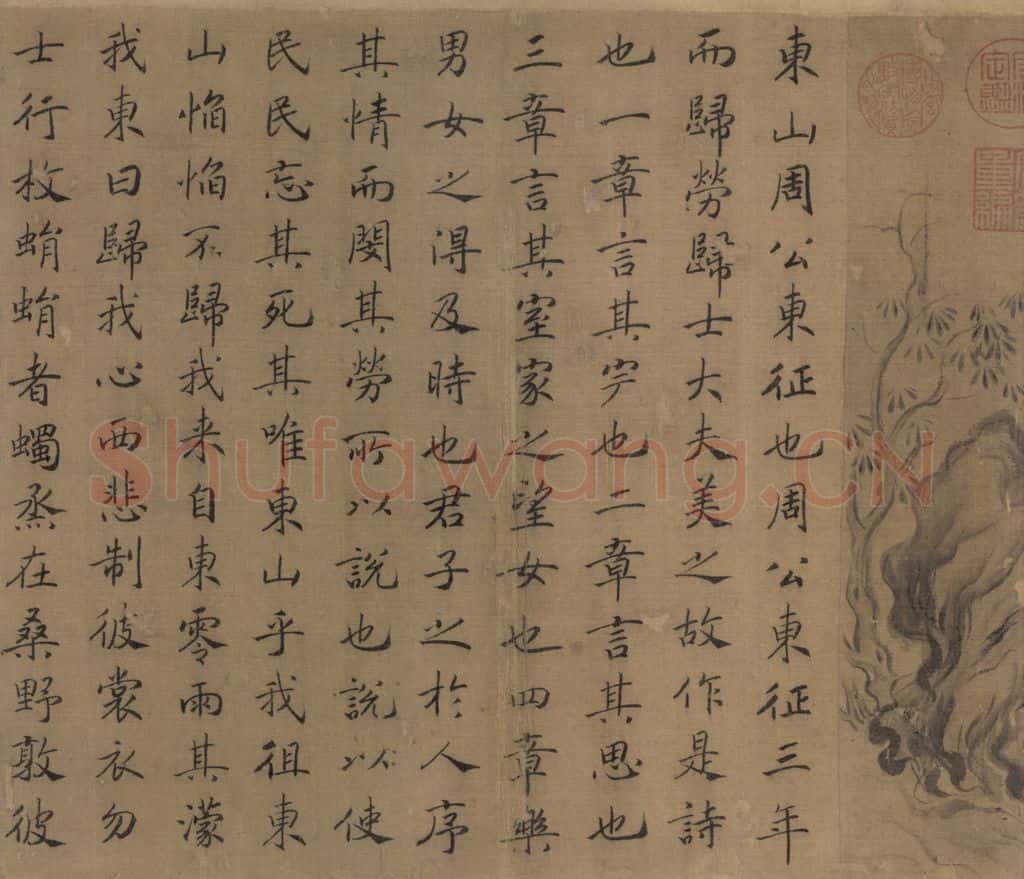 東山周公東征也周公東征三年
而歸勞歸士大夫美之故作是詩
也一章言其完也二章言其思也
三章言其室家之望女也四章樂
男女之得及時也君子之於人序
其情而閔其勞所以說也說以使
民民忘其死其唯東山乎我徂東
山慆慆不歸我来自東零雨其濛
我東曰歸我心西悲制彼裳衣勿
士行枚蜎蜎者蠋烝在桑野敦彼
Shufawang.CN